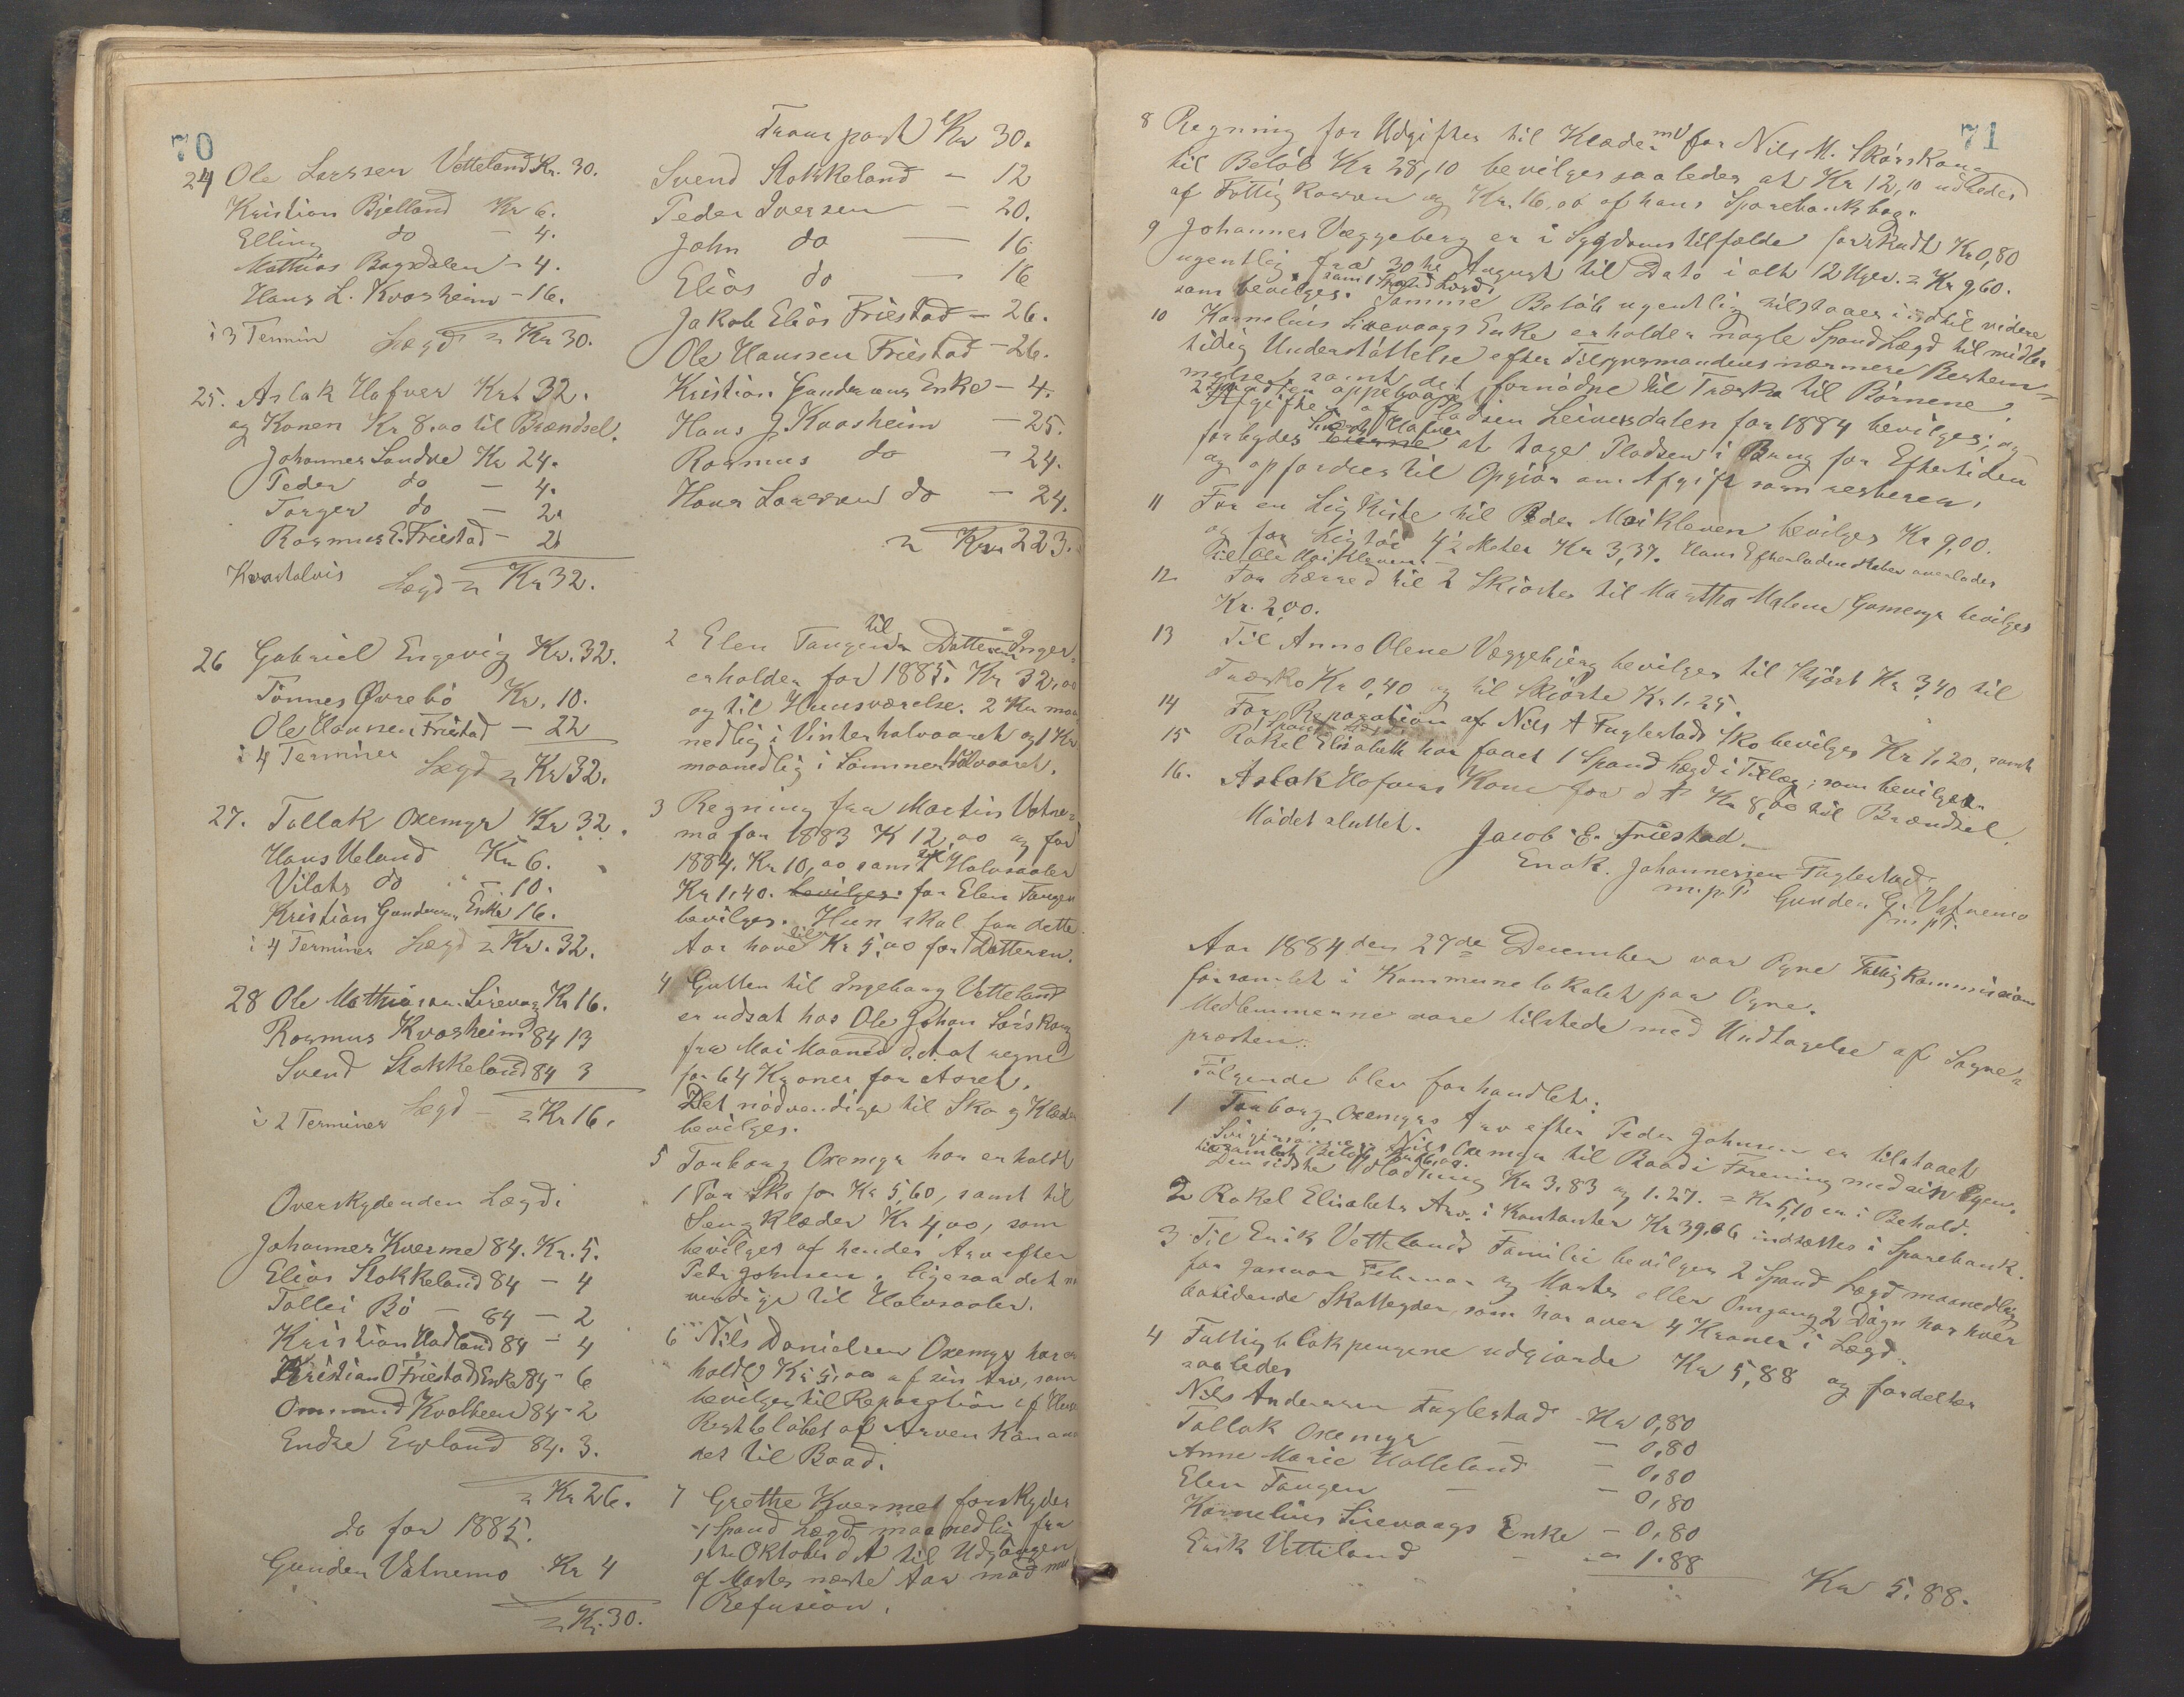 70
24 Ole Larssen Vetteland Kr. 30.
Kristian Bjelland Kr 6.
Elling do - 4.
Mathias Bagsdalen - 4.
Hans L. Kvasheim - 16.
i 3 Termin Lægd = Kr 30.
25. Aslak Hafver Kr 32.
og Konen Kr 8.00 til Brændsel.
Johannes Sandve Kr 24.
Peder do - 4.
Torger do - 2.
Rasmus E. Friestad - 2.
Kvartalvis Lægd = Kr 32.
26 Gabriel Engevig Kr. 32.
Tønnes Øvrebø Kr. 10.
Ole Hansen Friestad - 22
i 4 Terminer Lægd = Kr 32.
27. Tollak Oxemyr Kr 32.
Hans Ueland Kr 6.
Vilats do - 10.
Kristian Gundersens Enke 16.
i 4 Terminer Lægd = Kr. 32.
28 Ole Mathiasen Sirevåg Kr 16.
Rasmus Kvasheim 84 13
Svend Stokkeland 84 3
i 2 Terminer Lægd - = Kr 16.
Overskydenden Lægd:
Johannes Kverme 84. Kr. 5.
Elias Stokkeland 84 - 4
Tollei Bø - 84 - 2
Kristian Hadland 84 - 4
Kristian O Friestads Enke 84 - 6
Ommund Kvalbein 84 - 2
Endre Egeland 84. 3.
= Kr 26.
do for 1885.
Gunder Vatnemo Kr 4
= Kr. 30.
Transport Kr 30.
Svend Stokkeland - 12
Peder Iversen - 20.
John do - 16
Elias do - 16
Jakob Elias Friestad - 26.
Ole Hansen Friestad - 26.
Kristian Gundersens Enke - 4.
Hans J. Kvasheim - 25.
Rasmus do - 24.
Hans Larssen do - 24.
= Kr 223.
2 Elen Tangen til Datteren Inger
erholder for 1885. Kr 32,00
og til Huusværelse. 2 Kr maa
nedlig i Vinterhalvaaret og 1 Kr
maanedlig i Sommerhalvaaret.
3 Regning fra Martin Vatne-
mo for 1883 K 12,00 og for
1884. Kr 10,00 samt til Halvsaaler
Kr 1,40. bevilges for Elen Tangen
bevilges. Hun skal for dette
Aar have Kr 5,00 for Datteren.
4 Gutten til Ingeborg Vetteland
er udsat hos Ole Johan Sørskaug
fra Mai Maaned d.A. at regne
for 64 Kroner for Aaret.
Det nødvendige til Sko og Klæder
bevilges.
5 Tonborg Oxemyr har erholdt
1 Par Sko for Kr 5,60, samt til
Sengklæder Kr 4,00, som
bevilges af hendes Arv efter
Peder Johnsen. ligesaa det nø
vendige til Halvsaaler.
6 Nils Danielsen Oxemyr har er
holdt Kr 5,00 af sin Arv, som
bevilges til Reparation af Huset
Restbeløbet af Arven kan an
det til Baad.
7 Grethe Kvermes forskyder
1 Spand Lægd maanedlig fra
1ste Oktober d A til Udgangen
af Marts næste Aar mod
Refusion.
71
8 Regning for Udgifter til Klæder mv for Nils M. Skårskaug
til Beløb Kr 28,10 bevilges saaledes at Kr 12,10 udredes
af Fattigkassen og Kr. 16,00 af hans Sparebanksbog.
9 Johannes Væggeberg er i Sygdoms tilfælde forskudt Kr 0,80
ugentlig fra 30te August til Dato i alt 12 Uger = Kr 9,60.
som bevilges. Samme Beløb ugentlig tilstaaes indtil videre
samt 1 Spand Lægd.
10 Kornelius Sirevaags Enke erholder nogle Spand Lægd til midler
tidig Understøttelse efter Tilsynsmandens nærmere Bestem-
melse, samt det fornødne til Træsko til Børnene.
Afgiften af Pladsen Leiversdalen for 1884 bevilges; og
forbydes Eierne at tage Pladsen i Brug for Eftertiden
og opfordres til Opgjør om Afgift som resterer.
11 For en Ligkiste til Peder Maikleven bevilges Kr 9,00.
og for Ligtøi 4½ Meter Kr 3,37. Hans Efterladenskaber overlades
til Ole Maikleven.
12 For Lærred til 2 Skjorter til Martha Malene Gamemyr bevilges
Kr. 2,00.
13 Til Anna Olene Væggebjerg bevilges til Skjørt Kr 3,40 til
Træsko Kr 0,40 og til Skjorte Kr 1,25.
14 For Reparation af Nils A Fuglestads Sko bevilges Kr 1,20, samt
15 Rakel Elisabeth har faaet 1 Spand Lægd i Tillæg; som bevilges.
16. Aslak Hafvers Kone for d A Kr 8,00 til Brændsel.
Mødet sluttet.
Jacob E. Friestad.
Enok. Johannessen Fuglestad
m. p. P. Gunder G. Vatnemo
m. p. P.
Aar 1884 den 27de December var Ogne Fattigkommission
forsamlet i Kommunelokalet paa Ogne.
Medlemmerne vare tilstede med Undtagelse af Sogne-
præsten.
Følgende blev forhandlet:
1 Tonborg Oxemyrs Arv efter Peder Johnsen er tilstaaet
Svigersønnen Nils Oxemyr til Baad i Forening med sin Egen.
Den sidste Udlodning Kr 3,83 og 1.27. = Kr 5,10 er i Behold.
2 Rakel Elisabets Arv i Kontanter Kr 39,06 indsættes i Sparebank.
3 Til Erik Vettelands Familie bevilges 2 Spand Lægd maanedlig
for Januar Februar og Marts eller Omgang 2 Døgn hos hver
bosiddende Skatteyder, som har over 4 Kroner i Lægd.
4 Fattigblokpengene udgjorde Kr 5,88 og fordeltes
saaledes
Nils Andersen Fuglestad - Kr 0,80
Tollak Oxemyr - 0,80
Anne Marie Holleland - 0,80
Elen Tangen - 0,80
Kornelius Sirevaags Enke - 0,80
Erik Vetteland - 1.88
Kr 5.88.